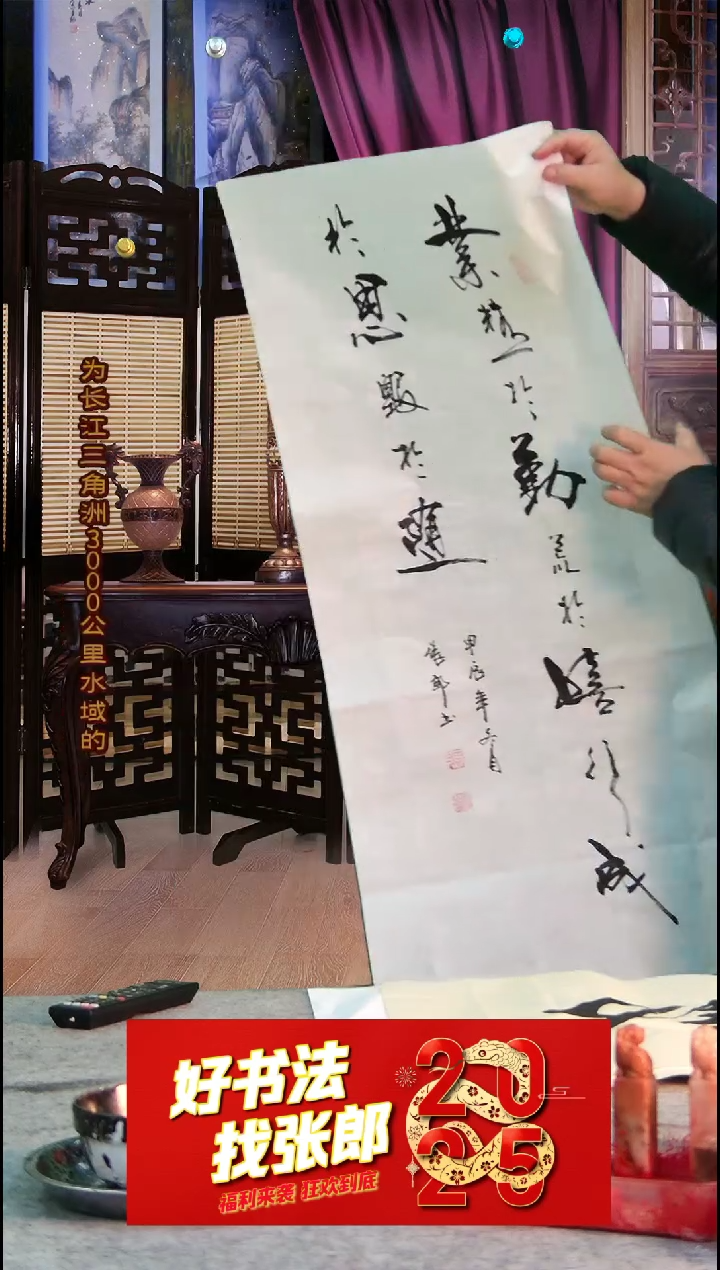 業精於勤荒於嬉行成
於思毁於随
甲辰年冬月
为长江三角洲3000公里水域的
好书法
找张郎
福利来袭 狂欢到底
2025